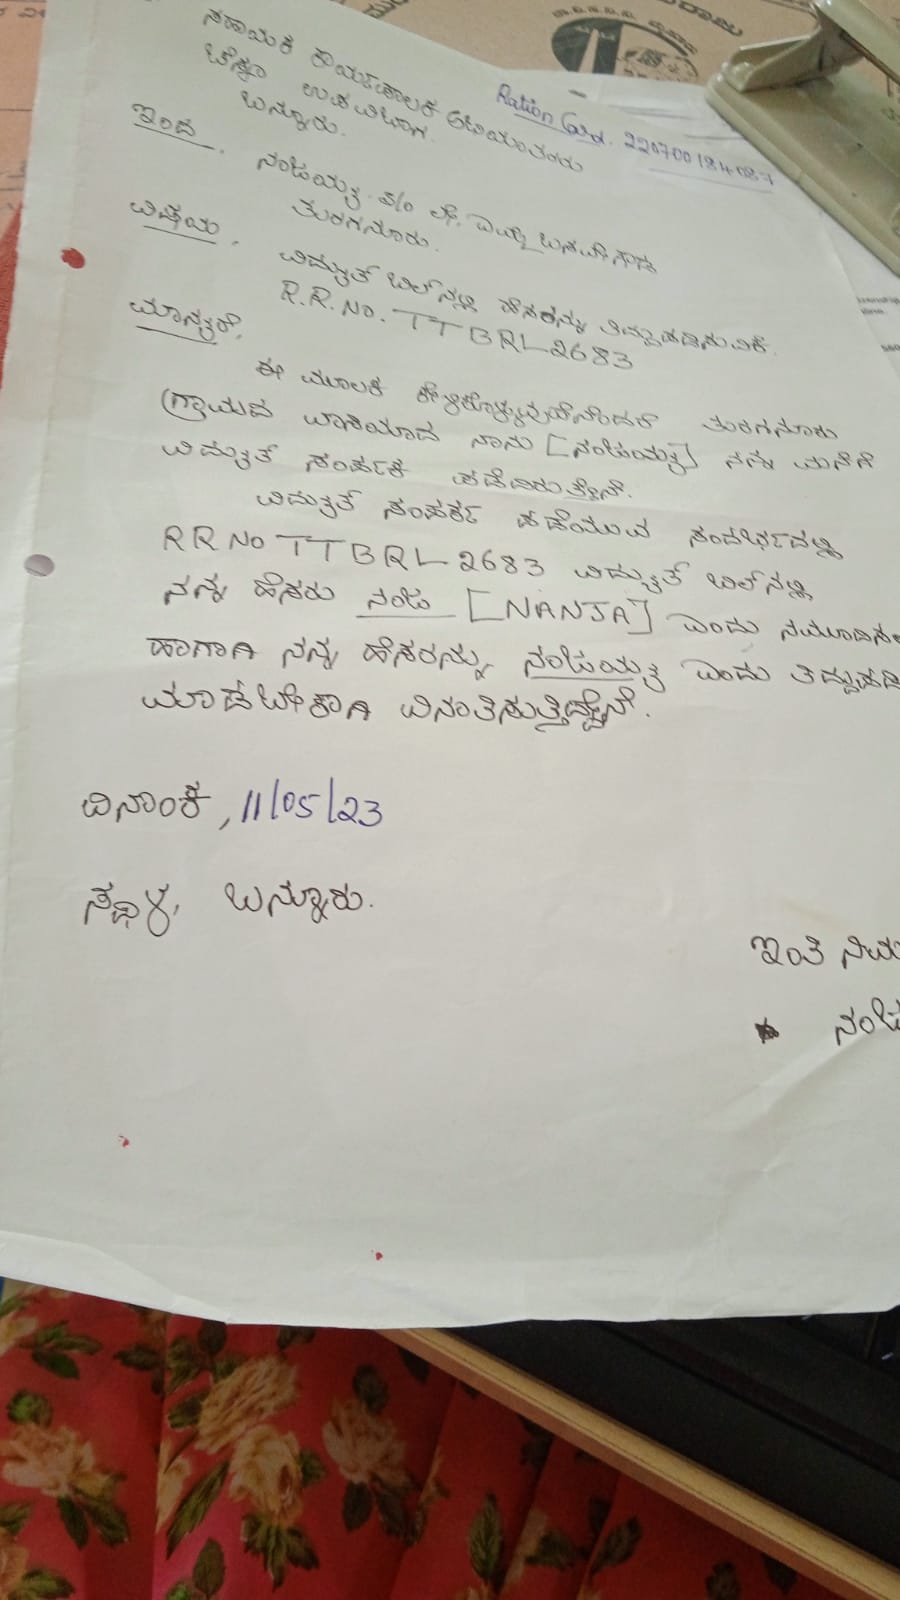 ಸಹಾಯಕ ಕಾರ್ಯಪಾಲಕ ಅಭಿಯಂತರರು
ಚೆಸ್ಕಾಂ ಉಪ ವಿಭಾಗ.
ಬನ್ನೂರು.
Ration Card. 220700184087
ಇಂದ,
ನಂಜಯ್ಯ
ತುರಗನೂರು.
ವಿಷಯ,
ವಿದ್ಯುತ್ ಬಿಲ್‌ನಲ್ಲಿ ಹೆಸರನ್ನು ತಿದ್ದುಪಡಿಸುವಿಕೆ.
R.R.No. TTBRL2683
ಮಾನ್ಯರೆ,
ಈ ಮೂಲಕ ಕೇಳಿಕೊಳ್ಳುವುದೇನೆಂದರೆ ತುರಗನೂರು
ಗ್ರಾಮದ ವಾಸಿಯಾದ ನಾನು [ನಂಜಯ್ಯ] ನನ್ನ ಮನೆಗೆ
ವಿದ್ಯುತ್ ಸಂರ್ಪಕ ಪಡೆದಿರುತ್ತೇನೆ.
ವಿದ್ಯುತ್ ಸಂಪರ್ಕ ಪಡೆಯುವ ಸಂದರ್ಭದಲ್ಲಿ
RRNo TTBRL2683 ವಿದ್ಯುತ್ ಬಿಲ್‌ನಲ್ಲಿ
ನನ್ನ ಹೆಸರು ನಂಜ [NANJA] ಎಂದು
ಹಾಗಾಗಿ ನನ್ನ ಹೆಸರನ್ನು ನಂಜಯ್ಯ ಎಂದು ತಿದ್ದುಪಡಿ
ಮಾಡಬೇಕಾಗಿ ವಿನಂತಿಸುತ್ತಿದ್ದೇನೆ.
ದಿನಾಂಕ, 11/05/23
ಸ್ಥಳ, ಬನ್ನೂರು.
ಇಂತಿ
ನಂಜ